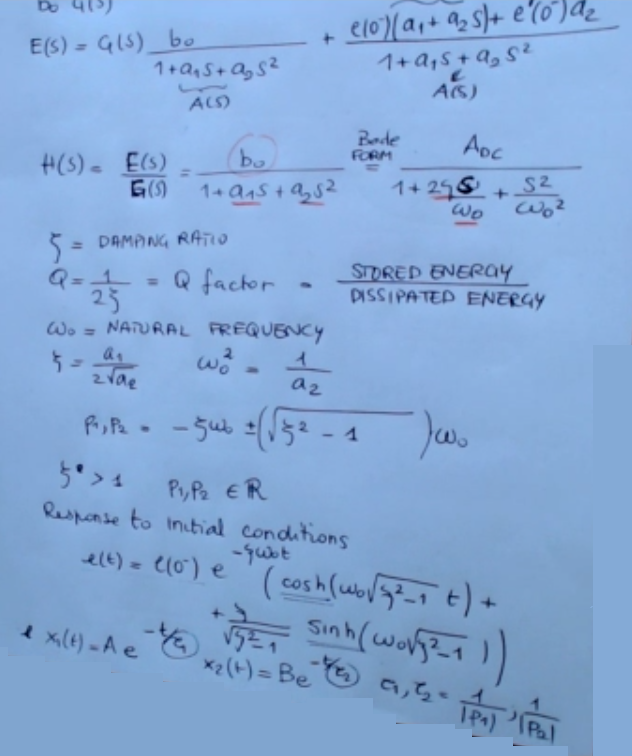 Do G(s)
E(s) = G(s) b₀/(1+a₁s+a₂s²) + (e(0⁻)(a₁+a₂s)+e'(0⁻)a₂)/(1+a₁s+a₂s²)
A(s) A(s)
H(s) = E(s)/G(s) = b₀/(1+a₁s+a₂s²) Bode FORM = A_DC/(1+2ζs/ω₀ + s²/ω₀²)
ζ = DAMPING RATIO
Q = 1/2ζ = Q factor = STORED ENERGY/DISSIPATED ENERGY
ω₀ = NATURAL FREQUENCY
ζ = a₁/2√a₂ ω₀² = 1/a₂
P₁,P₂ = -ζω₀ ±(√ζ² - 1)ω₀
ζ > 1 P₁,P₂ ∈ ℝ
Response to initial conditions
e(t) = e(0⁻) e^-ζω₀t (cosh(ω₀√ζ²-1 t) +
+ ζ/√ζ²-1 sinh(ω₀√ζ²-1))
x₁(t) = A e^-t/τ₁ x₂(t) = B e^-t/τ₂ τ₁,τ₂ = 1/|P₁|, 1/|P₂|